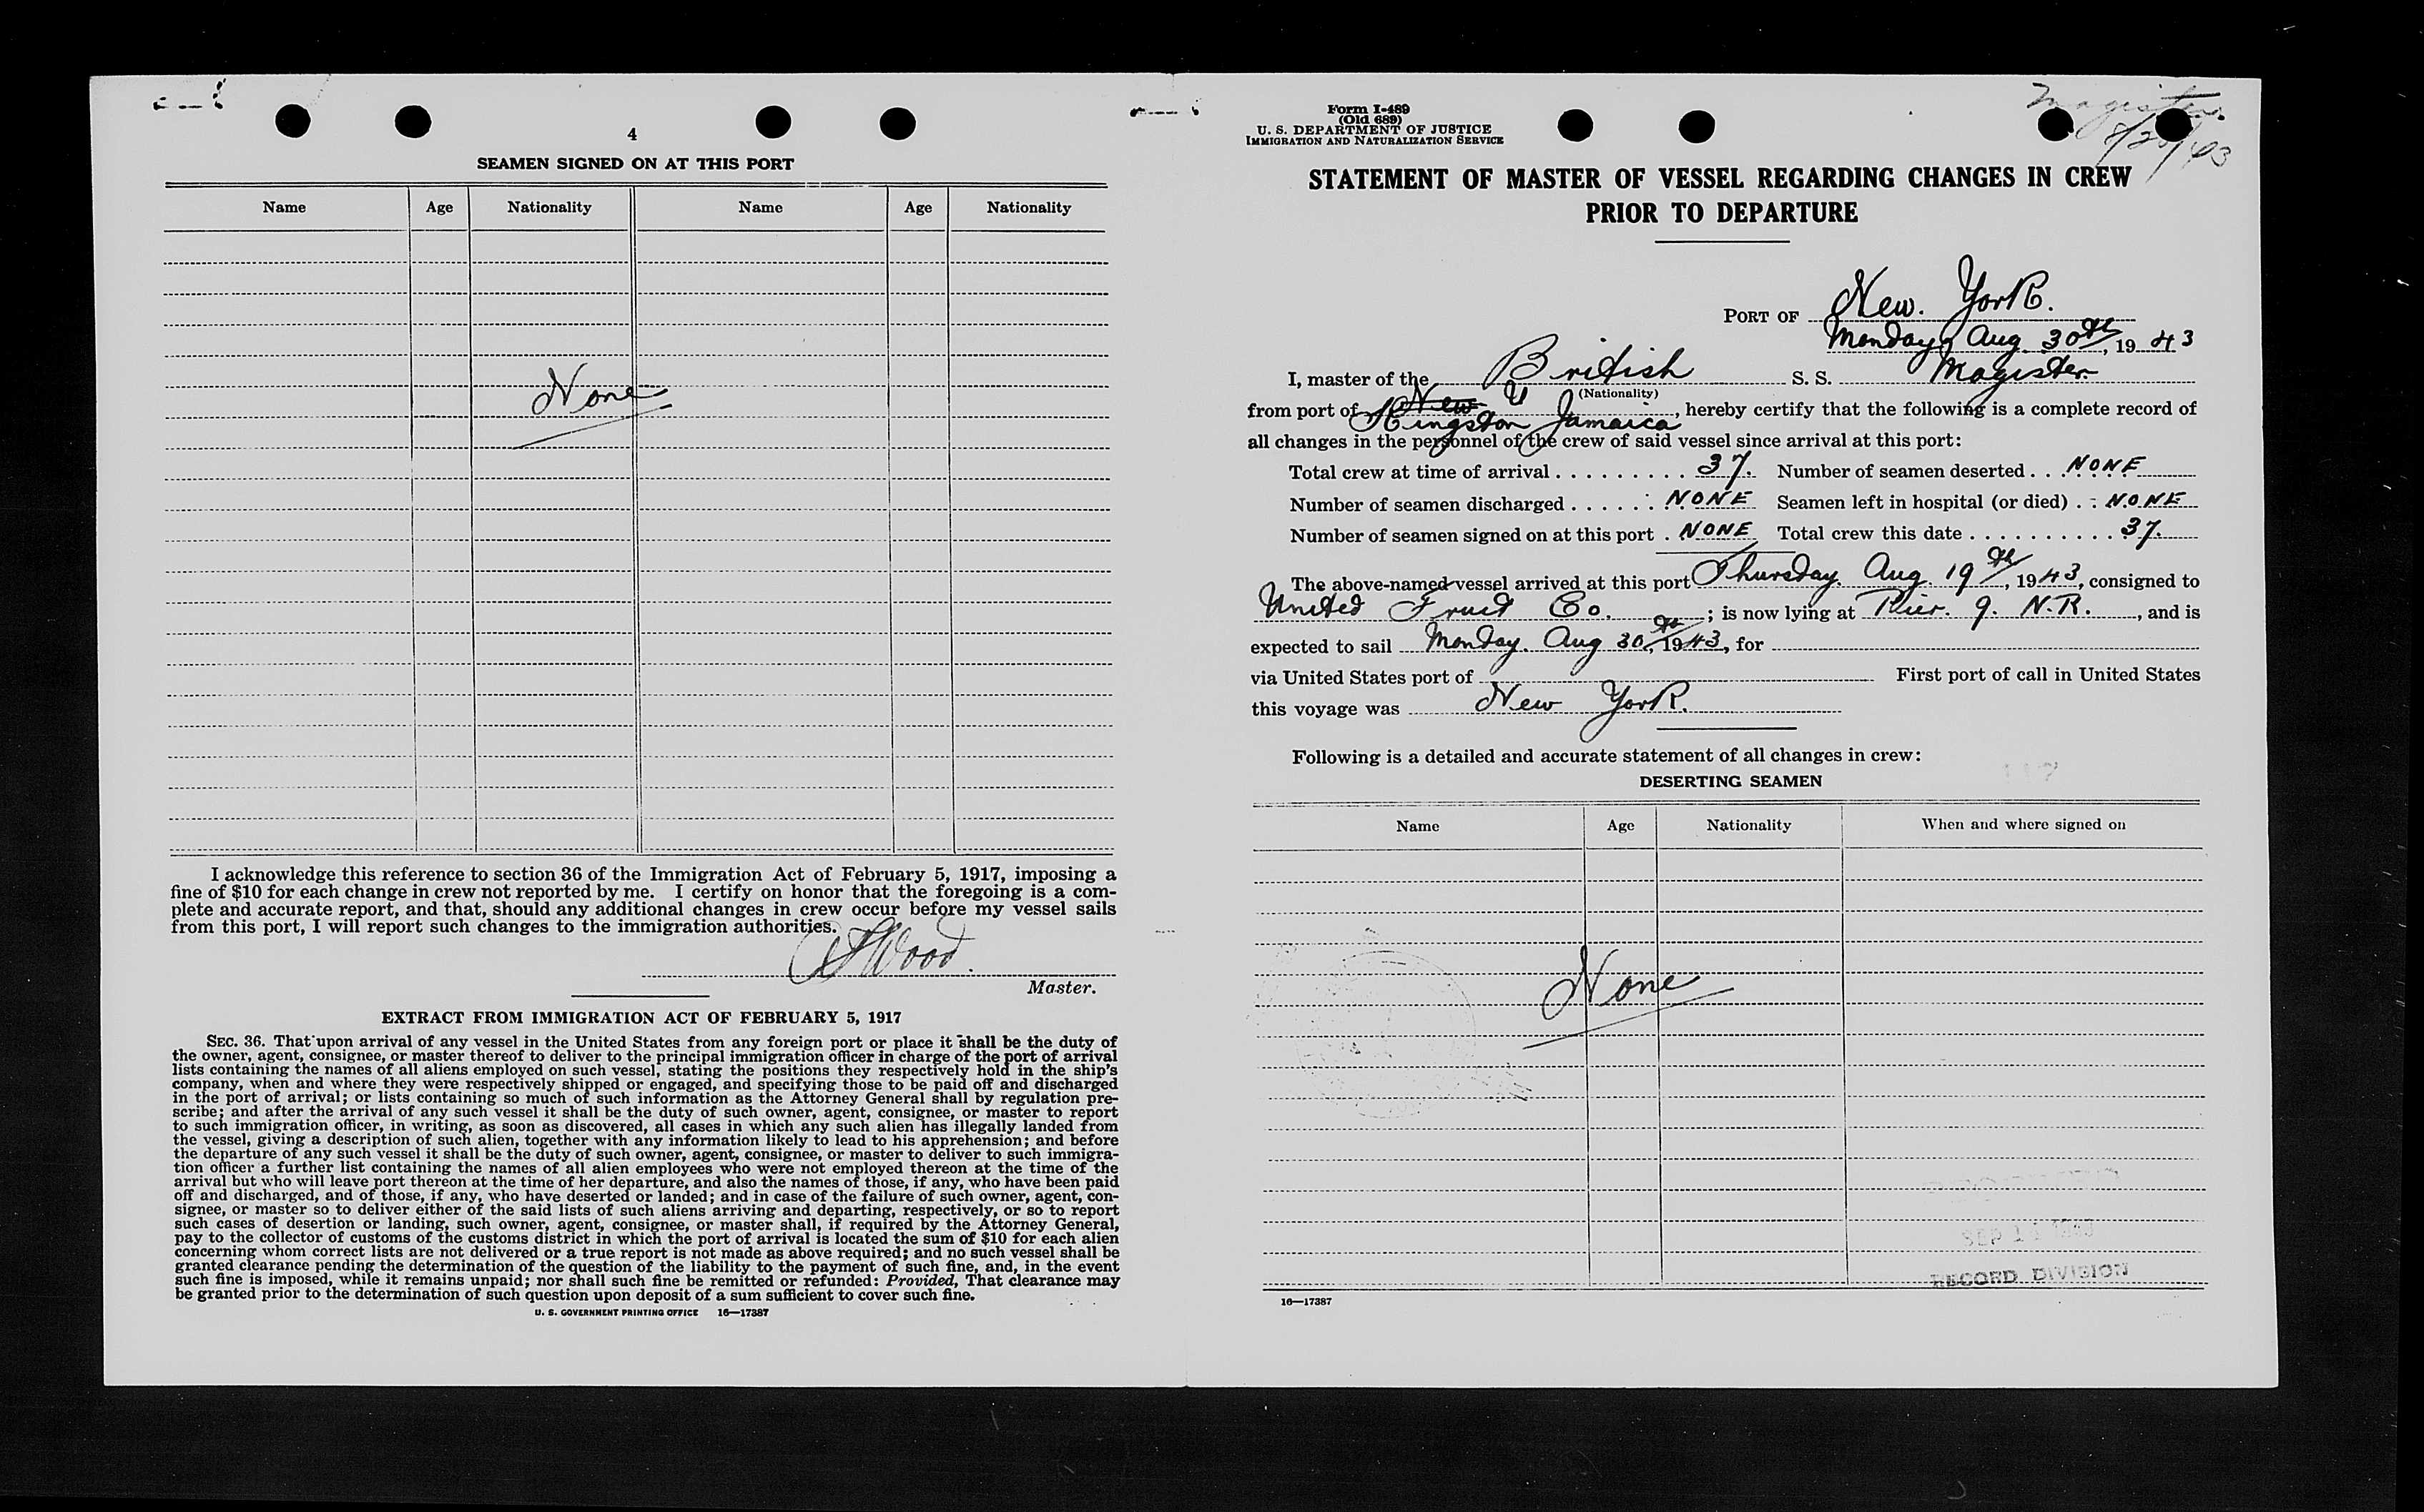 4
SEAMEN SIGNED ON AT THIS PORT
Name Age Nationality Name Age Nationality
None
I acknowledge this reference to section 36 of the Immigration Act of February 5, 1917, imposing a
fine of $10 for each change in crew not reported by me. I certify on honor that the foregoing is a com-
plete and accurate report, and that, should any additional changes in crew occur before my vessel sails
from this port, I will report such changes to the immigration authorities.
Wood.
Master.
EXTRACT FROM IMMIGRATION ACT OF FEBRUARY 5, 1917
SEC. 36. That upon arrival of any vessel in the United States from any foreign port or place it shall be the duty of
the owner, agent, consignee, or master thereof to deliver to the principal immigration officer in charge of the port of arrival
lists containing the names of all aliens employed on such vessel, stating the positions they respectively hold in the ship's
company, when and where they were respectively shipped or engaged, and specifying those to be paid off and discharged
in the port of arrival; or lists containing so much of such information as the Attorney General shall by regulation pre-
scribe; and after the arrival of any such vessel it shall be the duty of such owner, agent, consignee, or master to report
to such immigration officer, in writing, as soon as discovered, all cases in which any such alien has illegally landed from
the vessel, giving a description of such alien, together with any information likely to lead to his apprehension; and before
the departure of any such vessel it shall be the duty of such owner, agent, consignee, or master to deliver to such immigra-
tion officer a further list containing the names of all alien employees who were not employed thereon at the time of the
arrival but who will leave port thereon at the time of her departure, and also the names of those, if any, who have been paid
off and discharged, and of those, if any, who have deserted or landed; and in case of the failure of such owner, agent, con-
signee, or master so to deliver either of the said lists of such aliens arriving and departing, respectively, or so to report
such cases of desertion or landing, such owner, agent, consignee, or master shall, if required by the Attorney General,
pay to the collector of customs of the customs district in which the port of arrival is located the sum of $10 for each alien
concerning whom correct lists are not delivered or a true report is not made as above required; and no such vessel shall be
granted clearance pending the determination of the question of the liability to the payment of such fine, and, in the event
such fine is imposed, while it remains unpaid; nor shall such fine be remitted or refunded: Provided, That clearance may
be granted prior to the determination of such question upon deposit of a sum sufficient to cover such fine.
U. S. GOVERNMENT PRINTING OFFICE 16—17387
Form I-489
(Old 689)
U. S. DEPARTMENT OF JUSTICE
IMMIGRATION AND NATURALIZATION SERVICE
Magister
STATEMENT OF MASTER OF VESSEL REGARDING CHANGES IN CREW
PRIOR TO DEPARTURE
PORT OF New York.
Monday Aug 30th, 1943
I, master of the British S. S. Magister
(Nationality)
from port of New Kingston Jamaica, hereby certify that the following is a complete record of
all changes in the personnel of the crew of said vessel since arrival at this port:
Total crew at time of arrival . . . . . . . . . 37. Number of seamen deserted . . . NONE
Number of seamen discharged . . . . . . NONE Seamen left in hospital (or died) . . NONE
Number of seamen signed on at this port . NONE Total crew this date . . . . . . . . . . 37.
The above-named vessel arrived at this port Thursday. Aug 19th, 1943, consigned to
United Fruit Co. ; is now lying at Pier. 9. N.R. , and is
expected to sail Monday. Aug 30th, 1943, for
via United States port of First port of call in United States
this voyage was New York.
Following is a detailed and accurate statement of all changes in crew:
DESERTING SEAMEN
Name Age Nationality When and where signed on
None
RECORD DIVISION
16—17387